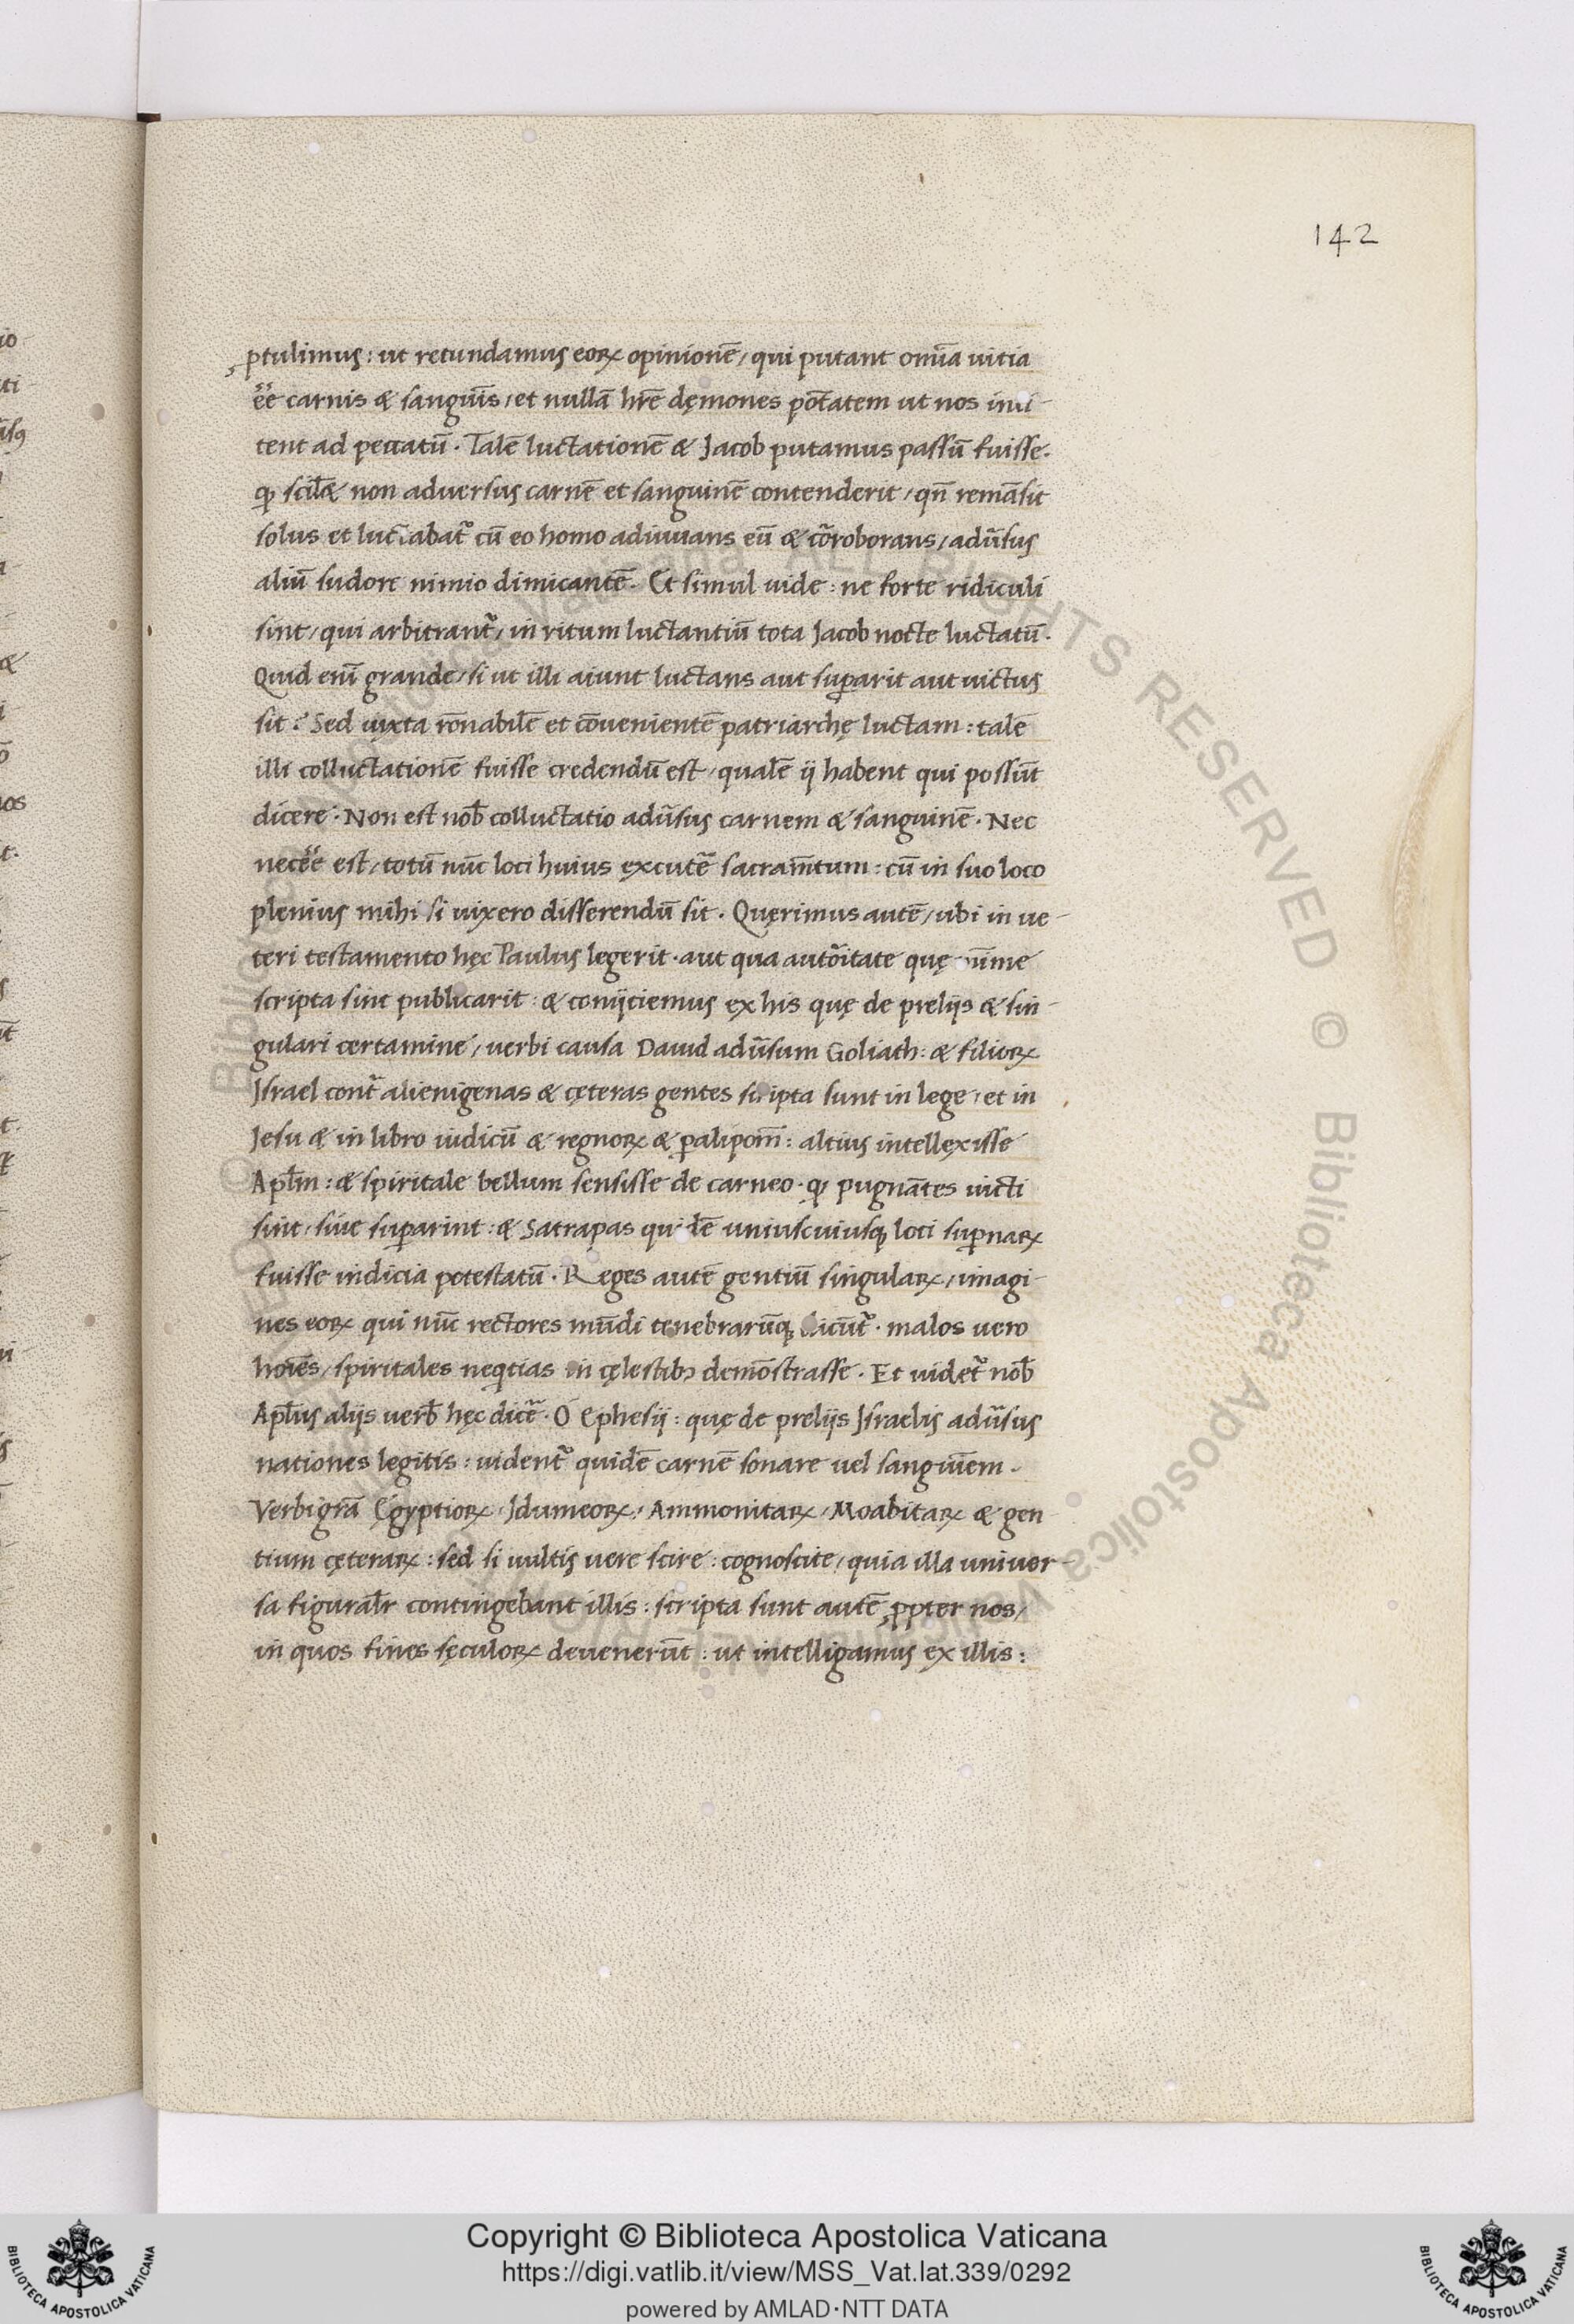 142
ꝓtulimus: ut retundamus eoꝝ opinionē/ qui putant om̄ia uitia
ēe carnis & sanguīs/ et nullā hr̄e dęmones pōtatem ut nos inui-
tent ad peccatū. Talē luctationē & Jacob putamus passū fuisse.
ꝙ scil& non aduersus carnē et sanguinē contenderit/ qn̄ remāsit
solus et luctabat᷑ cū eo homo adiuuans eū & cōroborans/ adūsus
aliū sudore nimio dimicantē. Et simul uide: ne forte ridiculi
sint/ qui arbitrant᷑/ in ritum luctantiū tota Jacob nocte luctatū.
Quid enī grande/ si ut illi aiunt luctans aut suꝑarit aut uictus
sit? Sed iuxta rōnabilē et cōuenientē patriarchę luctam: talē
illi colluctationē fuisse credendū est/ qualē ij habent qui possūt
dicere. Non est nob̄ colluctatio adūsus carnem & sanguinē. Nec
necēe est/ totū nūc loci huius excutē sacram̄tum: cū in suo loco
plenius mihi si uixero disserendū sit. Quęrimus autē/ ubi in ue-
teri testamento hęc Paulus legerit. aut qua autōitate quę mīme
scripta sint publicarit: & conijciemus ex his quę de prelijs & sin-
gulari certamine/ uerbi causa Dauid adūsum Goliath: & filioꝝ
Israel cont᷑ alienigenas & cęteras gentes scripta sunt in lege/ et in
Jesu & in libro iudicū & regnoꝝ & ꝑalipom̄: altius intellexisse
Apl̄m: & spiritale bellum sensisse de carneo. ꝙ pugnātes uicti
sint/ siue suꝑarint: & Satrapas quidē uniuscuiusq; loci suꝑnaꝝ
fuisse indicia potestatū. Reges autē gentiū singulaꝝ/ imagi-
nes eoꝝ qui nūc rectores mūdi tenebrarūq; dicūt᷑. malos uero
hoīes/ spiritales neqtias in cęlestibꝫ demōstrasse. Et uidet᷑ nob̄
Apl̄us alijs uerb̄ hęc dicē. O Ephesij: quę de prelijs Israelis adūsus
nationes legitis: uident᷑ quidē carnē sonare uel sanguīem.
Verbigrā Ęgyptioꝝ/ Idumeoꝝ/ Ammonitaꝝ/ Moabitaꝝ & gen
tium cęteraꝝ: sed si uultis uere scire: cognoscite/ quia illa uniuer-
sa figural̄r contingebant illis: scripta sunt autē ꝓpter nos/
in quos fines sęculoꝝ deuenerūt: ut intelligamus ex illis:
Copyright © Biblioteca Apostolica Vaticana
https://digi.vatlib.it/view/MSS_Vat.lat.339/0292
powered by AMLAD·NTT DATA